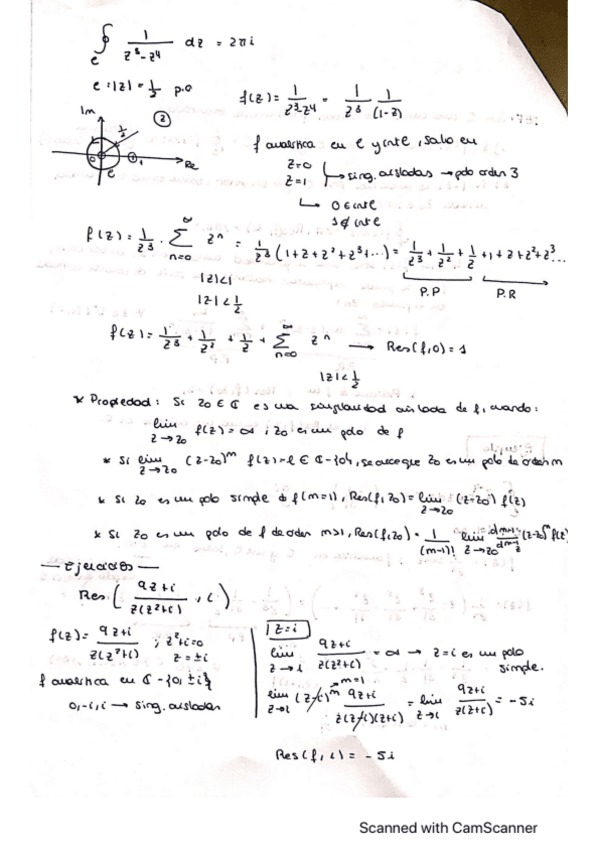 ∮_c 1/(z³-z⁴) dz = 2πi
c: |z| = 1/2 p.o
f(z) = 1/(z³-z⁴) = 1/z³ 1/(1-z)
Im
②
1/2
0
1
Re
c
f analítica en c y intc, salvo en
z=0
z=1 → sing. aisladas → polo orden 3
↳ 0 ∈ intc
1 ∉ intc
f(z) = 1/z³ · ∑_{n=0}^{∞} z^n = 1/z³ (1+z+z²+z³+...) = 1/z³ + 1/z² + 1/z + 1 + z + z² + z³...
|z|<1
|z|<1/2
P.P
P.R
f(z) = 1/z³ + 1/z² + 1/z + ∑_{n=0}^{∞} z^n → Res(f,0) = 1
|z|<1/2
* Propiedad: Si z0 ∈ ℂ es una singularidad aislada de f, cuando:
lim_{z→z0} f(z) = ∞ ; z0 es un polo de f
* Si lim_{z→z0} (z-z0)^m f(z) = l ∈ ℂ-{0}, se dice que z0 es un polo de orden m
* Si z0 es un polo simple d f (m=1), Res(f,z0) = lim_{z→z0} (z-z0) f(z)
* Si z0 es un polo de f de orden m>1, Res(f,z0) = 1/(m-1)! lim_{z→z0} d^{m-1}/d^{m-1}z (z-z0)^m f(z)
— Ejercicios —
Res( (9z+i)/(z(z²+1)) , i )
f(z) = (9z+i)/(z(z²+1)) ; z²+1=0
z=±i
f analítica en ℂ-{0,±i}
0,-i,i → sing. aisladas
z=i
lim_{z→i} (9z+i)/(z(z²+1)) = ∞ → z=i es un polo
simple.
m=1
lim_{z→i} (z-i)^m (9z+i)/(z(z-i)(z+i)) = lim_{z→i} (9z+i)/(z(z+i)) = -5i
Res(f,i) = -5i
Scanned with CamScanner